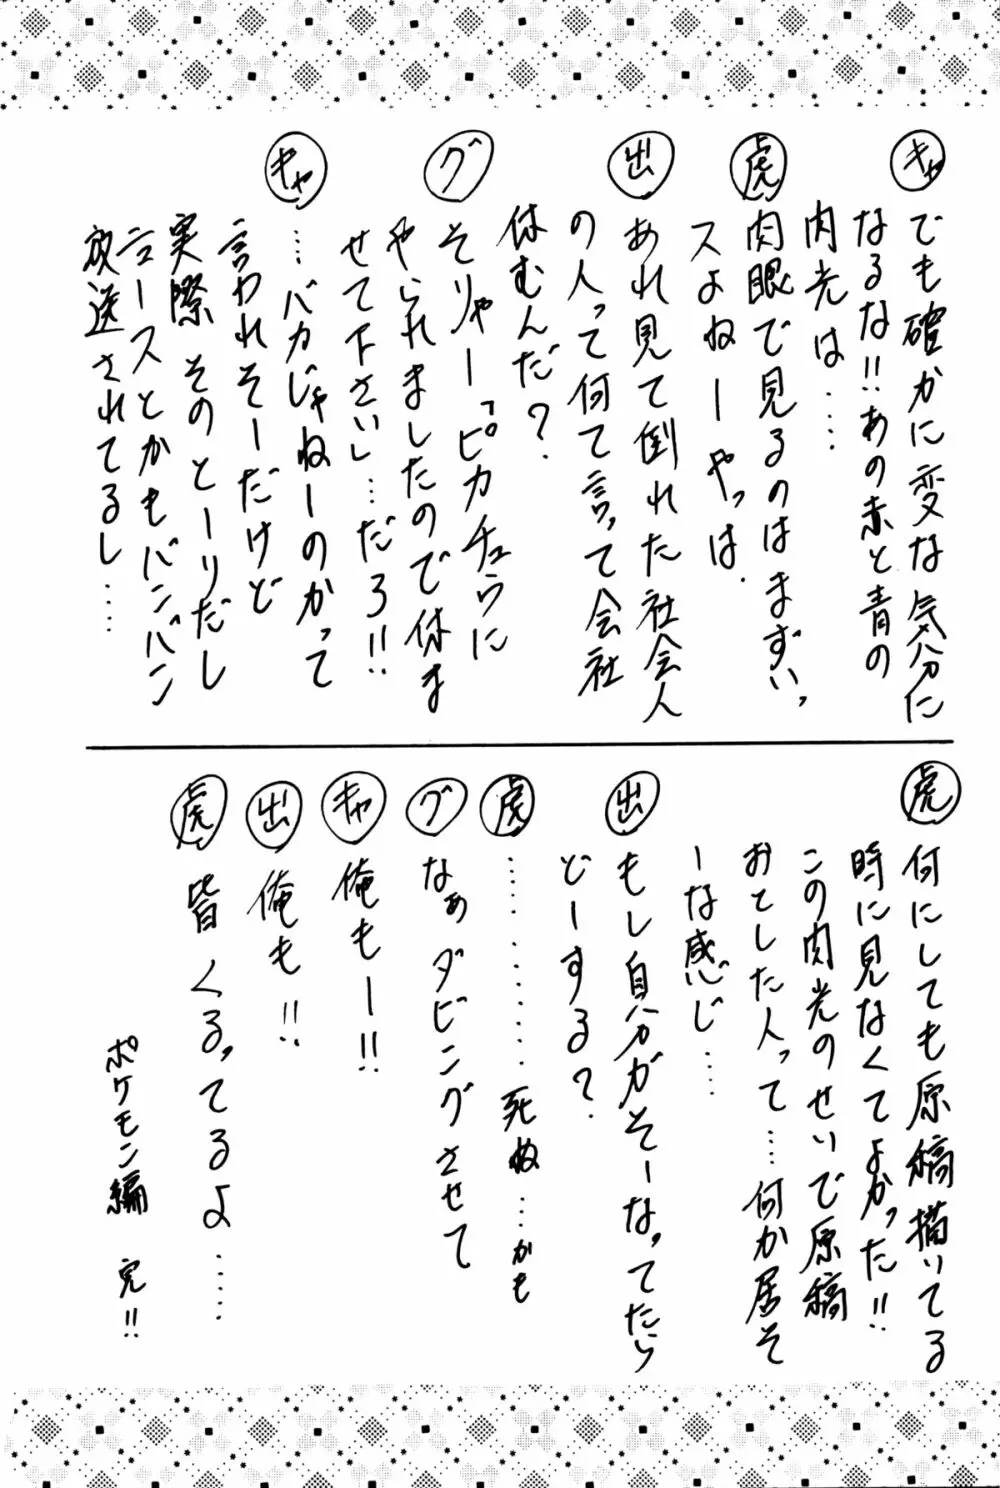 キャ でも確かに変な気分に
なるな!!あの赤と青の
肉光は……
虎 肉眼で見るのはまずいっ
スよねーやっぱ
出 あれ見て倒れた社会人
の人って何て言って会社
休むんだ?
グ そりゃー「ピカチュウに
やられましたので休ま
せて下さい」…だろ!!
キャ ……バカじゃねーのかって
言われそーだけど
実際そのとーりだし
ニュースとかもバンバン
放送されてるし……
虎 何にしても原稿描いてる
時に見なくてよかった!!
この肉光のせいで原稿
おとした人って…何か居そ
ーな感じ……
出 もし自分がそーなってたら
どーする?
虎 …………死ぬ…かも
グ なぁダビングさせて
キャ 俺もー!!
出 俺も!!
虎 皆くるってるよ……
ポケモン編 完!!